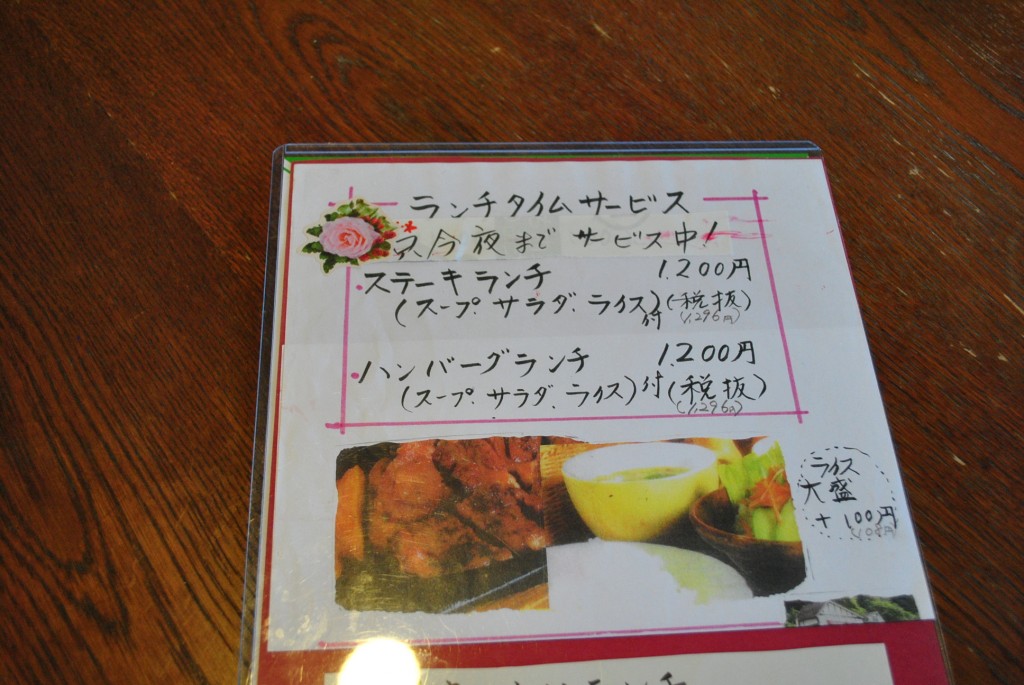 ランチタイムサービス
只今夜まで サービス中!
・ステーキランチ 1.200円
(スープ.サラダ.ライス)付(税抜)
(1,296円)
・ハンバーグランチ 1.200円
(スープ.サラダ.ライス)付(税抜)
(1,296円)
ライス
大盛
+100円
(108円)